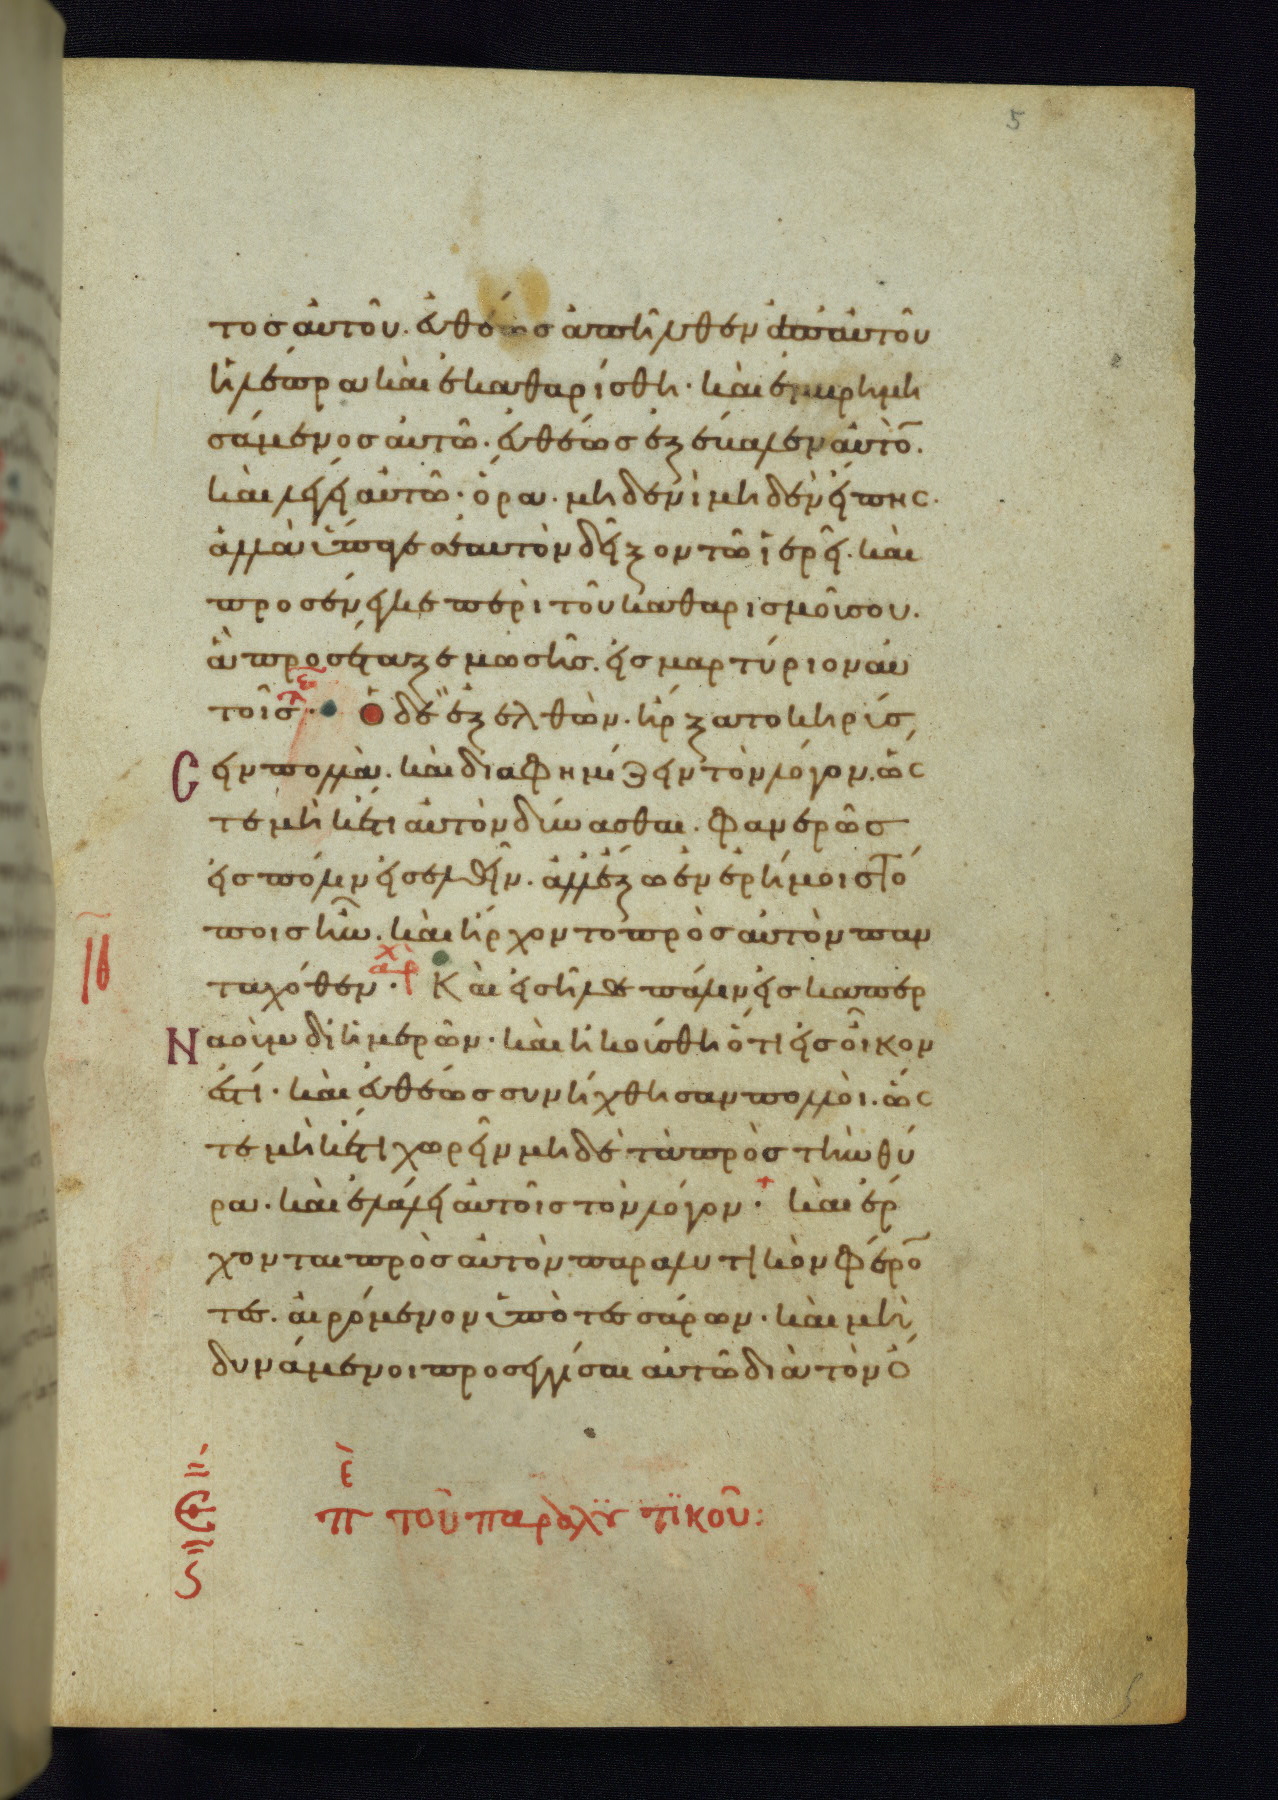 5
τος αὐτοῦ. εὐθέως ἀπῆλθεν ἀπ' αὐτοῦ
ἡ λέπρα καὶ ἐκαθαρίσθη· καὶ ἐμβριμη
σάμενος αὐτῶ· εὐθέως ἐξέβαλεν αὐτὸ̅.
καὶ λέγει αὐτῶ· ὅρα. μηδενὶ μηδὲν εἴπης.
ἀλλὰ ὕπαγε σεαυτὸν δεῖξον τῶ ἱερεῖ. καὶ
προσένεγκε περὶ τοῦ καθαρισμοῦ σου.
ἃ προσέταξε μωσῆς. εἰς μαρτύριον αυ
τοῖς· ὁ δὲ ἐξελθὼν. ἤρξατο κηρύσ
σειν πολλὰ. καὶ διαφημίζειν τὸν λόγον. ὥς
τε μηκέτι αὐτὸν δύνασθαι. φανερῶς
εἰς πόλιν εἰσελθεῖν. ἀλλ' ἔξω ἐν ἐρήμοις τό
ποις ἦν. καὶ ἤρχοντο πρὸς αὐτὸν παν
ταχόθεν· Καὶ εἰσῆλθε πάλιν εἰς καπερ
ναοὺμ δι ἡμερῶν· καὶ ἠκούσθη ὅτι εἰς οἶκον
ἐστί· καὶ εὐθέως συνήχθησαν πολλοὶ. ὥς
τε μηκέτι χωρεῖν μηδὲ τὰ πρὸς τὴν θύ
ραν. καὶ ἐλάλει αὐτοῖς τὸν λόγον· καὶ ἔρ
χονται πρὸς αὐτὸν παραλυτικὸν φέρο̅
τες. αἰρόμενον ὑπὸ τεσσάρων· καὶ μὴ
δυνάμενοι προσεγγίσαι αὐτῶ διὰ τὸν ὄ
ε̅ πε τοῦ παραλϋτϊκοῦ: